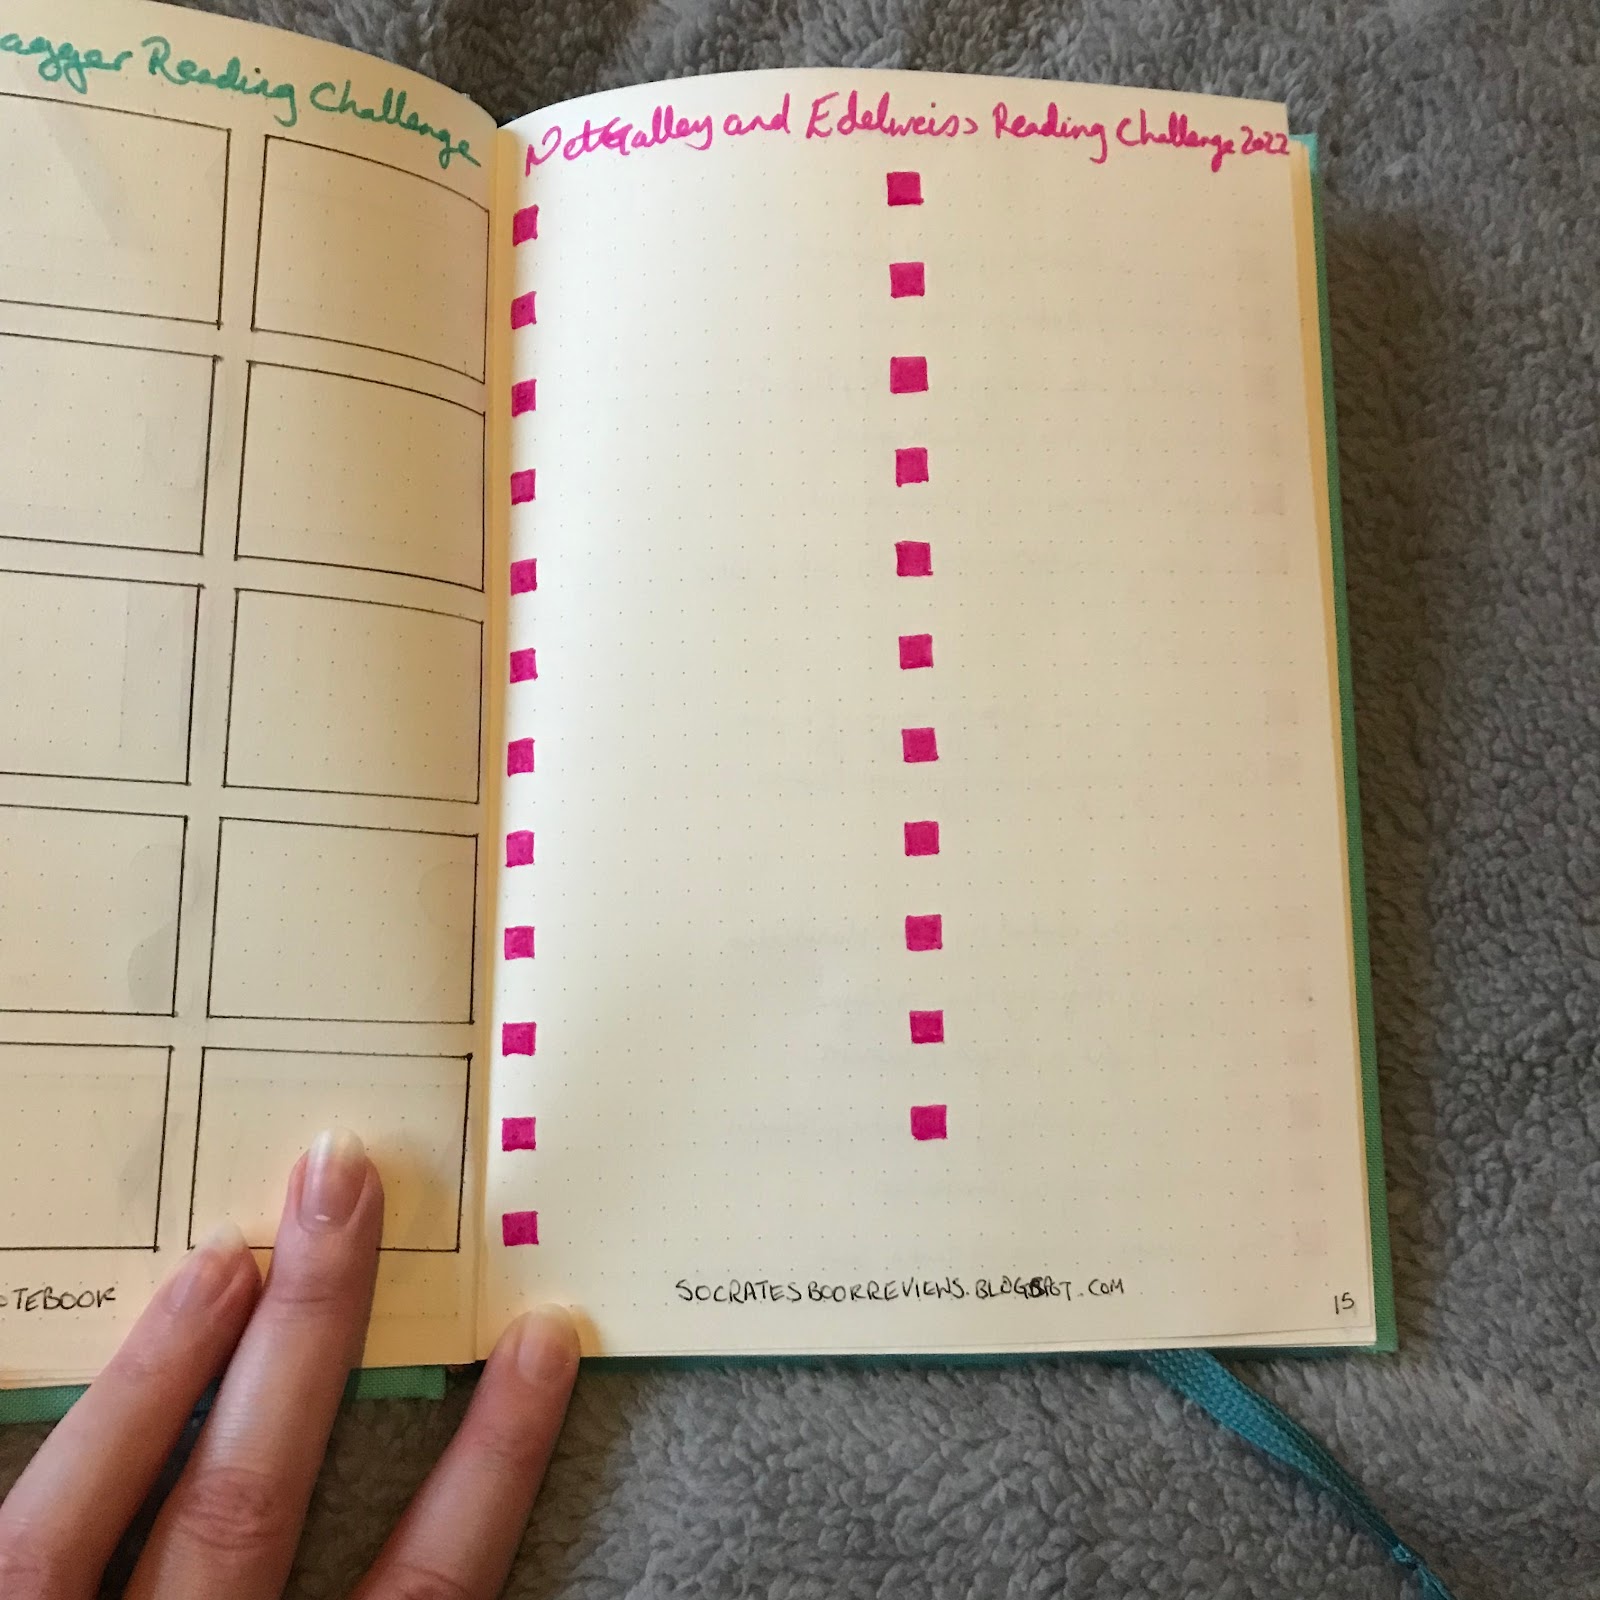 agger Reading Challenge
NetGalley and Edelweiss Reading Challenge 2022
OTEBOOK
SOCRATESBOOKREVIEWS.BLOGSPOT.COM
15